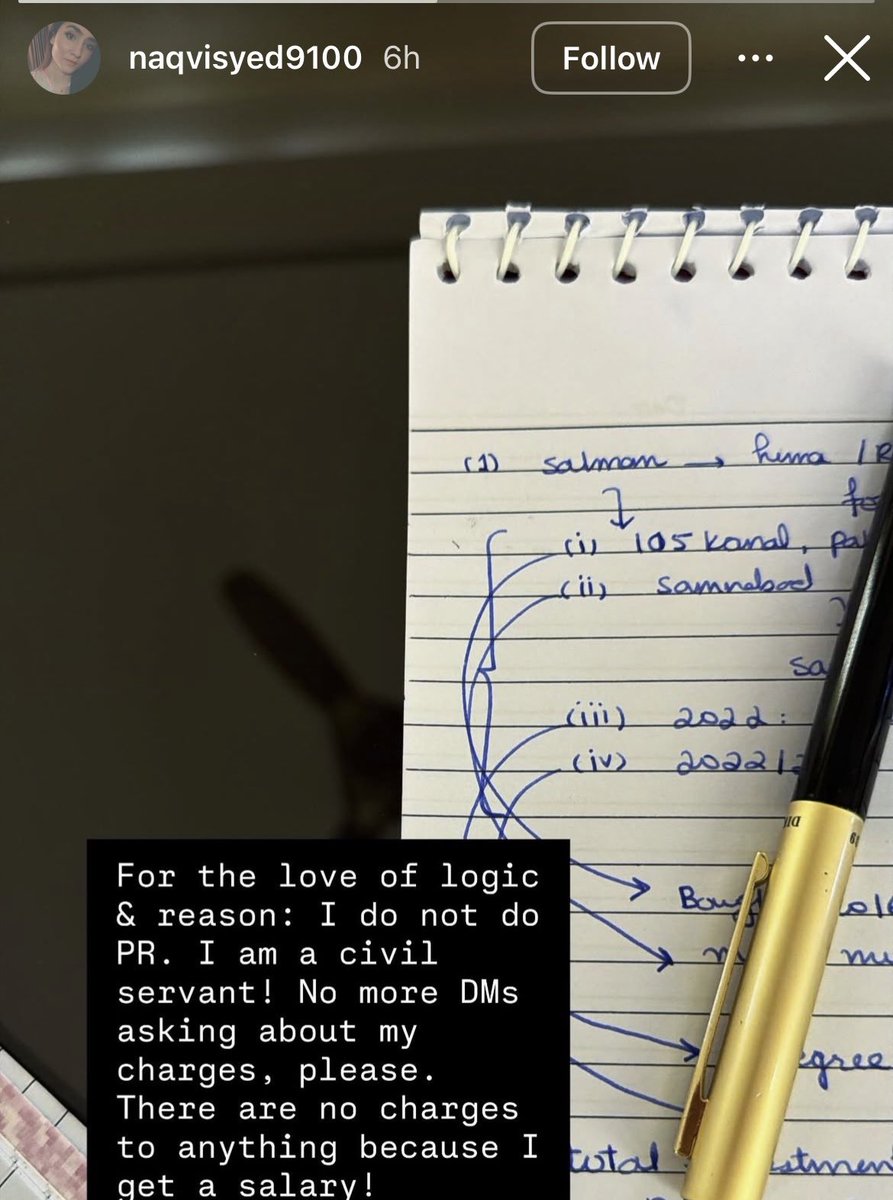 naqvisyed9100 6h Follow
(1) salman → huma / R
fo
(i) 105 kanal, pa
(ii) samnabad
sa
(iii) 2022 :
(iv) 2022/2
Boug
egree
total stmen
For the love of logic
& reason: I do not do
PR. I am a civil
servant! No more DMs
asking about my
charges, please.
There are no charges
to anything because I
get a salary!